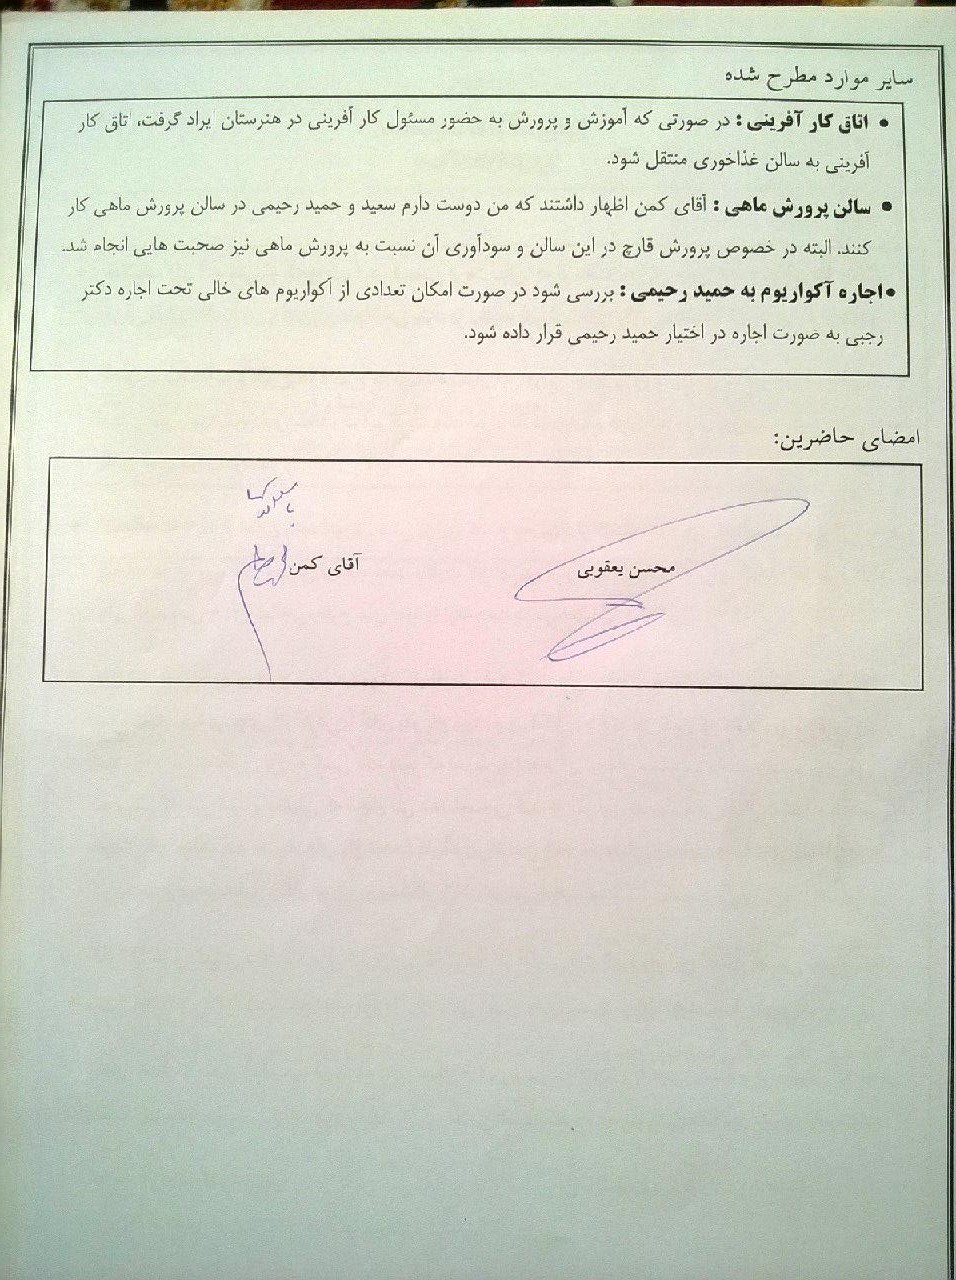 سایر موارد مطرح شده
• اتاق کار آفرینی : در صورتی که آموزش و پرورش به حضور مسئول کار آفرینی در هنرستان ایراد گرفت، اتاق کار
آفرینی به سالن غذاخوری منتقل شود.
• سالن پرورش ماهی : آقای کمن اظهار داشتند که من دوست دارم سعید و حمید رحیمی در سالن پرورش ماهی کار
کنند. البته در خصوص پرورش قارچ در این سالن و سودآوری آن نسبت به پرورش ماهی نیز صحبت هایی انجام شد.
• اجاره آکواریوم به حمید رحیمی : بررسی شود در صورت امکان تعدادی از آکواریوم های خالی تحت اجاره دکتر
رجبی به صورت اجاره در اختیار حمید رحیمی قرار داده شود.
امضای حاضرین:
محسن یعقوبی
آقای کمن